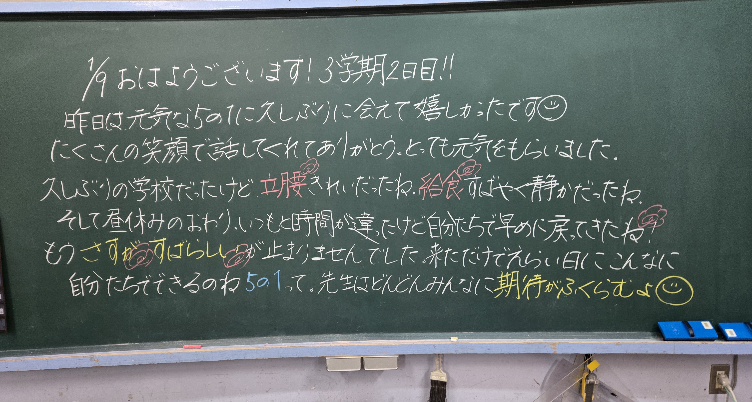 1/9 おはようございます! 3学期2日目!!
昨日は元気な5の1に久しぶりに会えて嬉しかったです
たくさんの笑顔で話してくれてありがとう。とっても元気をもらいました。
久しぶりの学校だったけど 立腰きれいだったね。給食すばやく静かだったね。
そして昼休みのおわり、いつもと時間が違ったけど自分たちで早めに戻ってきたね!
もう さすが すばらしい が止まりませんでした。来ただけでえらい日にこんなに
自分たちでできるのね 5の1って。先生はどんどんみんなに期待がふくらむよ